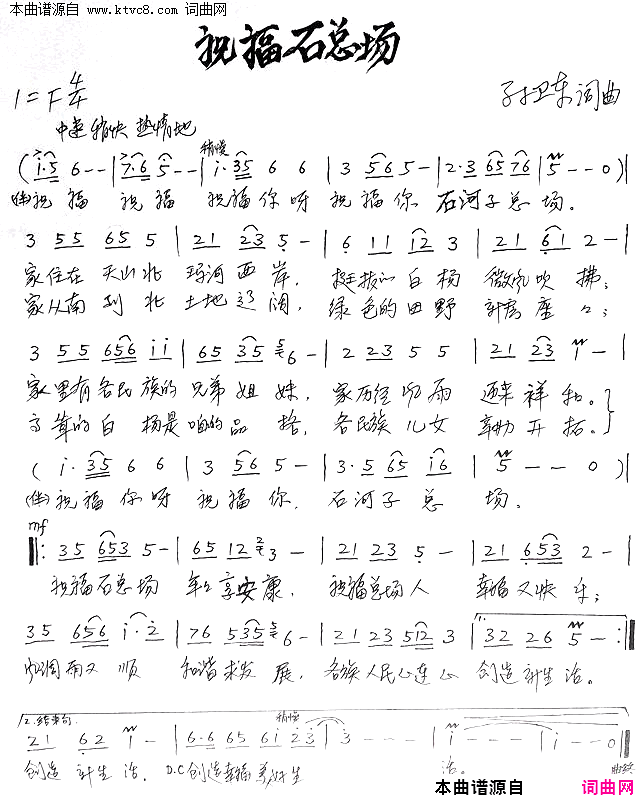 本曲谱源自
www.ktvc8.com 词曲网
祝福石总场
1=F 4/4
孙卫东词曲
中速稍快 热情地
稍慢
(i·5 6 - - | 7·6 5 - - | i·35 6 6 | 3 56 5 - | 2·3 65 76 | 5 - - 0)
(伴)祝福 祝福 祝福你呀 祝福你 石河子总场。
3 55 65 5 | 21 23 5 - | 6 11 12 3 | 21 61 2 - |
家住在天山北玛河西岸, 挺拔的白杨微风吹拂;
家从南到北土地辽阔, 绿色的田野新房座座;
3 55 656 ii | 65 35 6 - | 2 23 5 5 | 21 23 i - |
家里有各民族的兄弟姐妹, 家历经风雨迎来祥和。
高耸的白杨是咱的品格, 各民族儿女辛勤开拓。
(i·35 6 6 | 3 56 5 - | 3·5 65 i6 | 5 - - 0)
(伴)祝福你呀 祝福你, 石河子总场。
mf
35 653 5 - | 65 12 3 - | 21 23 5 - | 21 653 2 - |
祝福石总场 年年享安康, 祝福总场人 幸福又快乐;
35 656 i·2 | 76 535 6 - | 21 23 512 3 | 32 26 5 - :|
风调雨又顺 和谐求发展, 各族人民心连心 创造新生活。
2.结束句
稍慢
21 62 i - | 6·6 65 6i 23 | 3 - - - | i - - - | i - - 0 ||
创造新生活。 D.C创造幸福美好生 活。
本曲谱源自
词曲网